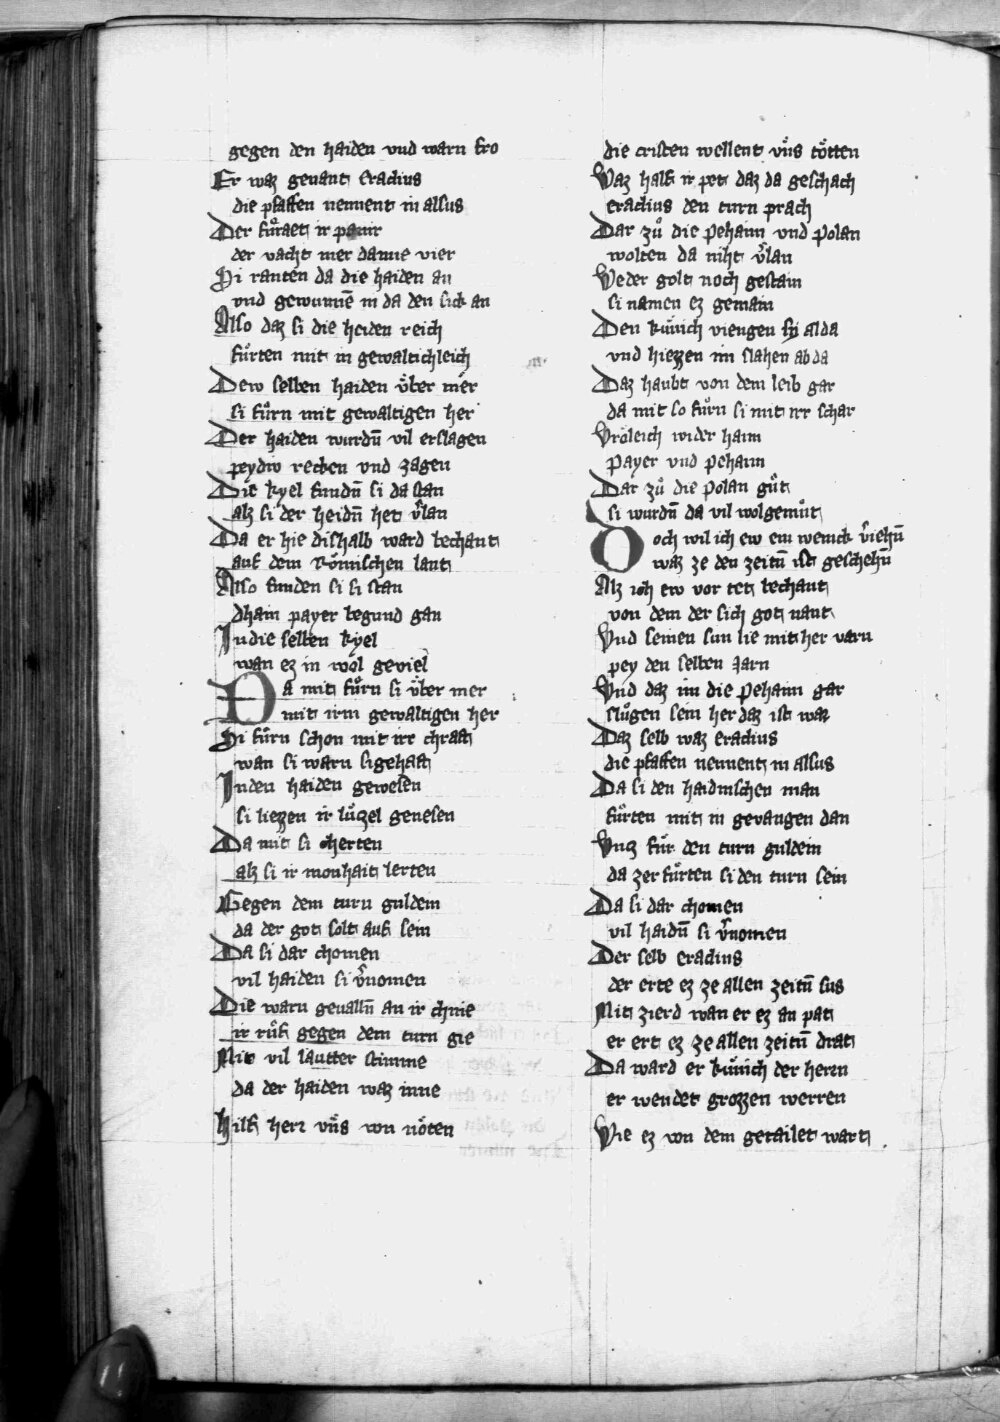 gegen den haiden vnd warn fro
Er waz genant eradius
die pfaffen nennent in alsus
Der fuͤraet ir panir
der vacht mer danne vier
Si ranten da die haiden an
vnd gewunnē in da den sick an
Also daz si die heiden reich
fuͤrten mit in gewaltichleich
Dew selben haiden vͤber mer
si fuͤrn mit gewaltigen her
Der haiden wurdn̄ vil erslagen
peydiv recken vnd zagen
Die kyel fundn̄ si da stan
alz si der heidn̄ het v̾lan
Da er hie dishalb ward bechant
auf dem Roͤmischen lant
Also funden si si stan
dhain payer begund gan
In die selben kyel
wan ez in wol geviel
Da mit fuͤrn si vͤber mer
mit irm gewaltigen her
Si fuͤrn schon mit irr chraft
wan si warn sigehaft
In den haiden gewesen
si liezzen ir luͤtzel genesen
Da mit si cherten
alz si ir monhait lerten
Gegen dem turn guldein
da der got solt auf sein
Da si dar chomen
vil haiden si v̾nomen
Die warn geualln̄ an ir chnie
ir ruͤff gegen dem turn gie
Mit vil lautter stimme
da der haiden waz inne
Hilf herr vns von noͤten
die cristen wellent vns toͤtten
Waz half ir pet daz da geschach
eradius den turn prach
Dar zuͦ die pehaim vnd polan
wolten da niht v̾lan
Weder golt noch gestain
si namen ez gemain
Den kuͤnich viengen sy alda
vnd hiezzen im slahen ab da
Daz haubt von dem leib gar
da mit so fuͤrn si mit irr schar
Vroleich wider haim
payer vnd pehaim
Dar zuͦ die polan guͤt
si wurdn̄ da vil wolgemuͤt
Doch wil ich ew ein wenick v̾iehn̄
waz ze den zeitn̄ ist geschehn̄
Alz ich ew vor tet bechant
von dem der sich got nant
Vnd seinen sun lie mit her varn
pey den selben Jarn
Vnd daz im die pehaim gar
sluͤgen sein her daz ist war
Daz selb waz eradius
die pfaffen nennent in alsus
Da si den haidnischen man
fuͤrten mit in gevangen dan
Vntz fuͤr den turn guldein
da zerfuͤrten si den turn sein
Da si dar chomen
vil haidn̄ si v̾nomen
Der selb eradius
der erte ez ze allen zeitn̄ sus
Mit zierd wan er ez an pat
er ert ez ze allen zeitn̄ drat
Da ward er kuͤnich der herrn
er wendet grozzen werren
Wie ez von dem getailet wart